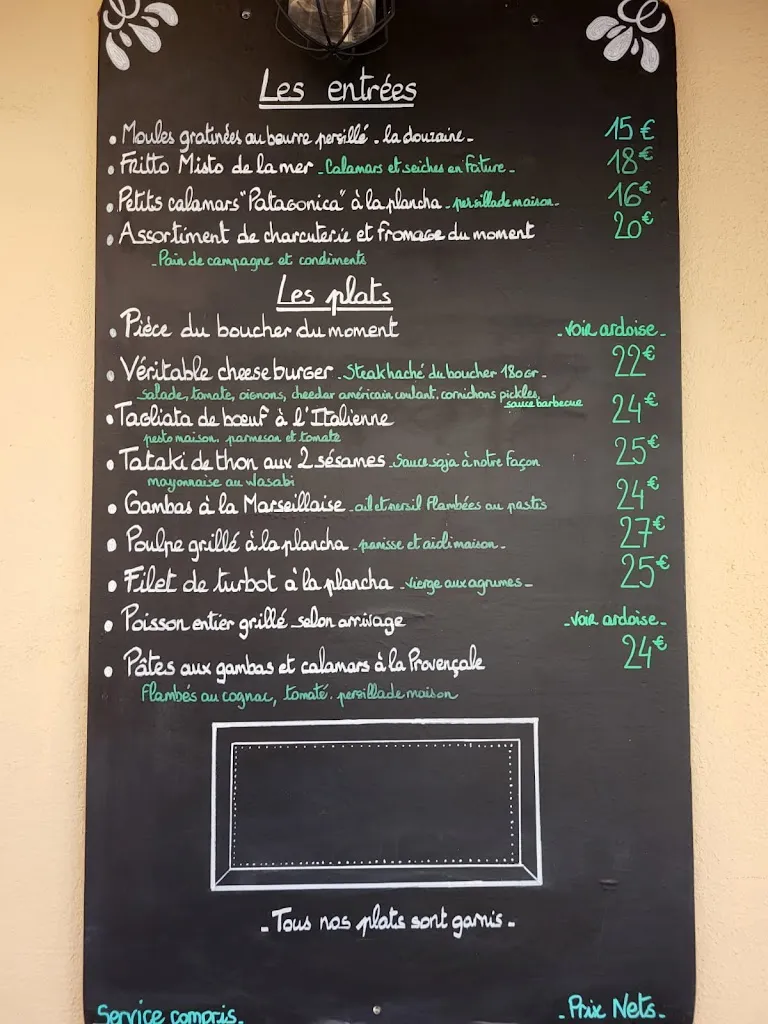 Les entrées
• Moules gratinées au beurre persillé - la douzaine - 15€
• Fritto Misto de la mer - Calamars et seiches en friture - 18€
• Petits calamars "Patagonica" à la plancha - persillade maison - 16€
• Assortiment de charcuterie et fromage du moment 20€
- Pain de campagne et condiments
Les plats
• Pièce du boucher du moment - voir ardoise -
• Véritable cheese burger - Steak haché du boucher 180gr - 22€
salade, tomate, oignons, cheedar américain coulant, cornichons pickles,
sauce barbecue
• Tagliata de bœuf à l'Italienne 24€
pesto maison, parmesan et tomate
• Tataki de thon aux 2 sésames - Sauce soja à notre façon 25€
mayonnaise au wasabi
• Gambas à la Marseillaise - ail et persil flambées au pastis 24€
• Poulpe grillé à la plancha - panisse et aioli maison - 27€
• Filet de turbot à la plancha - vierge aux agrumes - 25€
• Poisson entier grillé selon arrivage - voir ardoise -
• Pâtes aux gambas et calamars à la Provençale 24€
Flambés au cognac, tomate, persillade maison
- Tous nos plats sont garnis -
Service compris - - Prix Nets -